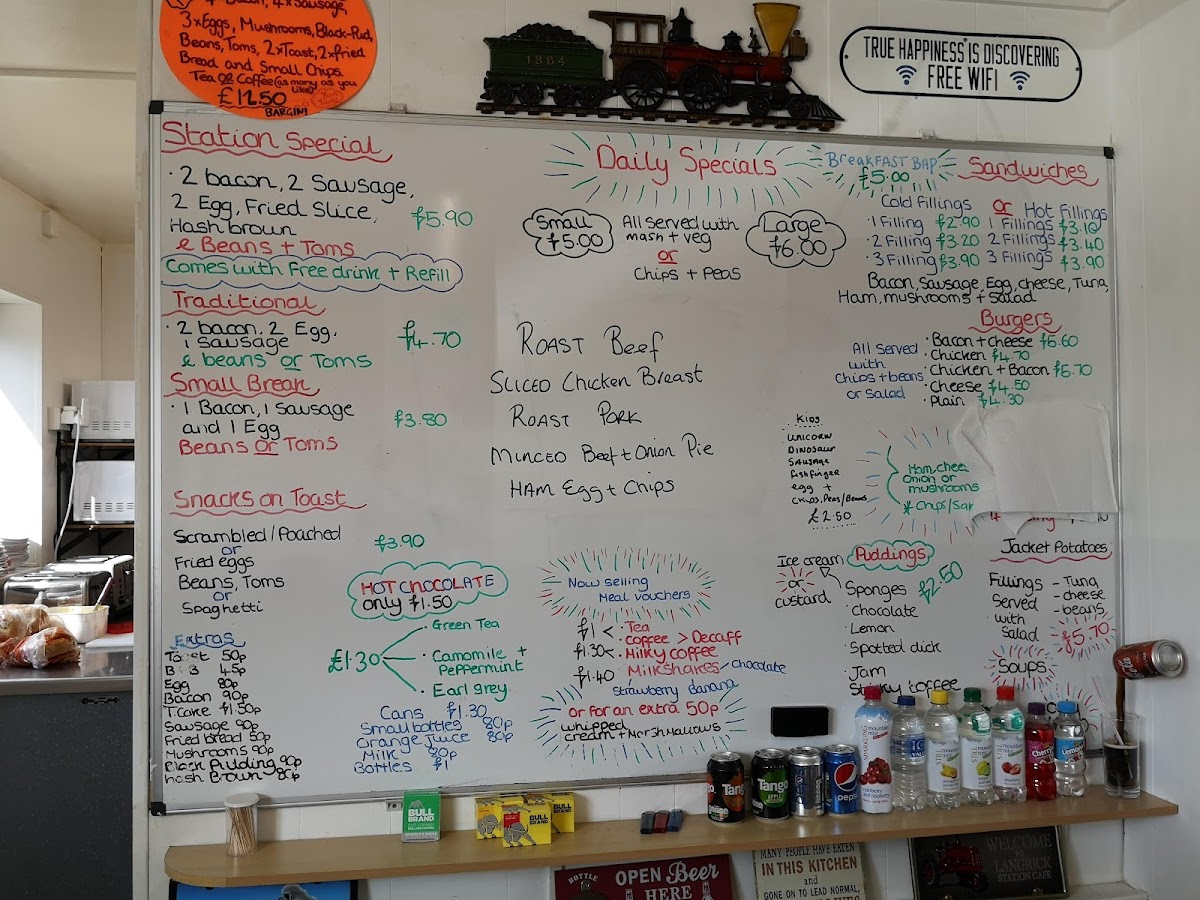 4x Bacon, 4x Sausage,
3xEggs, Mushrooms, Black-Pud,
Beans, Toms, 2xToast, 2xfried
Bread and Small Chips
Tea OR Coffee (as many as you
Like)
£12.50
BARGIN!
1884
1884
TRUE HAPPINESS IS DISCOVERING
FREE WIFI
Station Special
· 2 bacon, 2 Sausage,
2 Egg, Fried Slice,
Hash brown
& Beans + Toms
£5.90
Comes with Free drink + Refill
Traditional
· 2 bacon, 2 Egg,
1 Sausage
& beans or Toms
£4.70
Small Break
· 1 Bacon, 1 Sausage
and 1 Egg
Beans or Toms
£3.80
Snacks on Toast
Scrambled/Poached
or
Fried eggs
Beans, Toms
or
Spaghetti
£3.90
Extras
Toast 50p
45p
Egg 80p
Bacon 90p
T.Cake £1.50p
Sausage 90p
Fried bread 50p
Mushrooms 90p
Black Pudding 90p
hash Brown 80p
HOT CHOCOLATE
only £1.50
£1.30
· Green Tea
· Camomile +
Peppermint
· Earl grey
Cans £1.30
Small bottles 80p
Orange juice 80p
Milk 80p
Bottles £1
Daily Specials
Small
£5.00
All served with
mash + veg
or
Chips + Peas
Large
£6.00
Roast Beef
Sliced Chicken Breast
Roast Pork
Minced Beef + Onion Pie
Ham Egg + Chips
Now selling
Meal vouchers
£1 < · Tea
· Coffee > Decaff
£1.30 < · Milky coffee
£1.40 · Milkshakes - chocolate
Strawberry Banana
or for an extra 50p
whipped
cream + Marshmallows
BREAKFAST BAP
£5.00
Sandwiches
Cold Fillings or Hot Fillings
· 1 Filling £2.90 1 Fillings £3.10
· 2 Filling £3.20 2 Fillings £3.40
· 3 Filling £3.90 3 Fillings £3.90
Bacon, Sausage, Egg, cheese, Tuna,
Ham, mushrooms + salad
Burgers
All served
with
Chips + beans
or Salad
· Bacon + cheese
· Chicken £4.70
· Chicken + Bacon
· Cheese £4.50
· Plain £4.30
Kids
UNICORN
DINOSAUR
SAUSAGE
fishfinger
egg +
chips, Peas/Beans
£2.50
Ham, chee
Onion or
mushrooms
* Chips/
Ice cream
or
custard
Puddings
£2.50
Sponges
· chocolate
· Lemon
· Spotted dick
· Jam
Sticky toffee
Jacket Potatoes
Fillings
Served
with
Salad
- Tuna
- cheese
- beans
£5.70
Soups
BULL
BRAND
BULL
BRAND
BULL
BRAND
Tango
Tango
APPLE
pepsi
Cherry
Lemon
BOTTLE
OPEN Beer
HERE
MANY PEOPLE HAVE EATEN
IN THIS KITCHEN
and
GONE ON TO LEAD NORMAL,
WELCOME
TO
LANGRICK
STATION CAFE